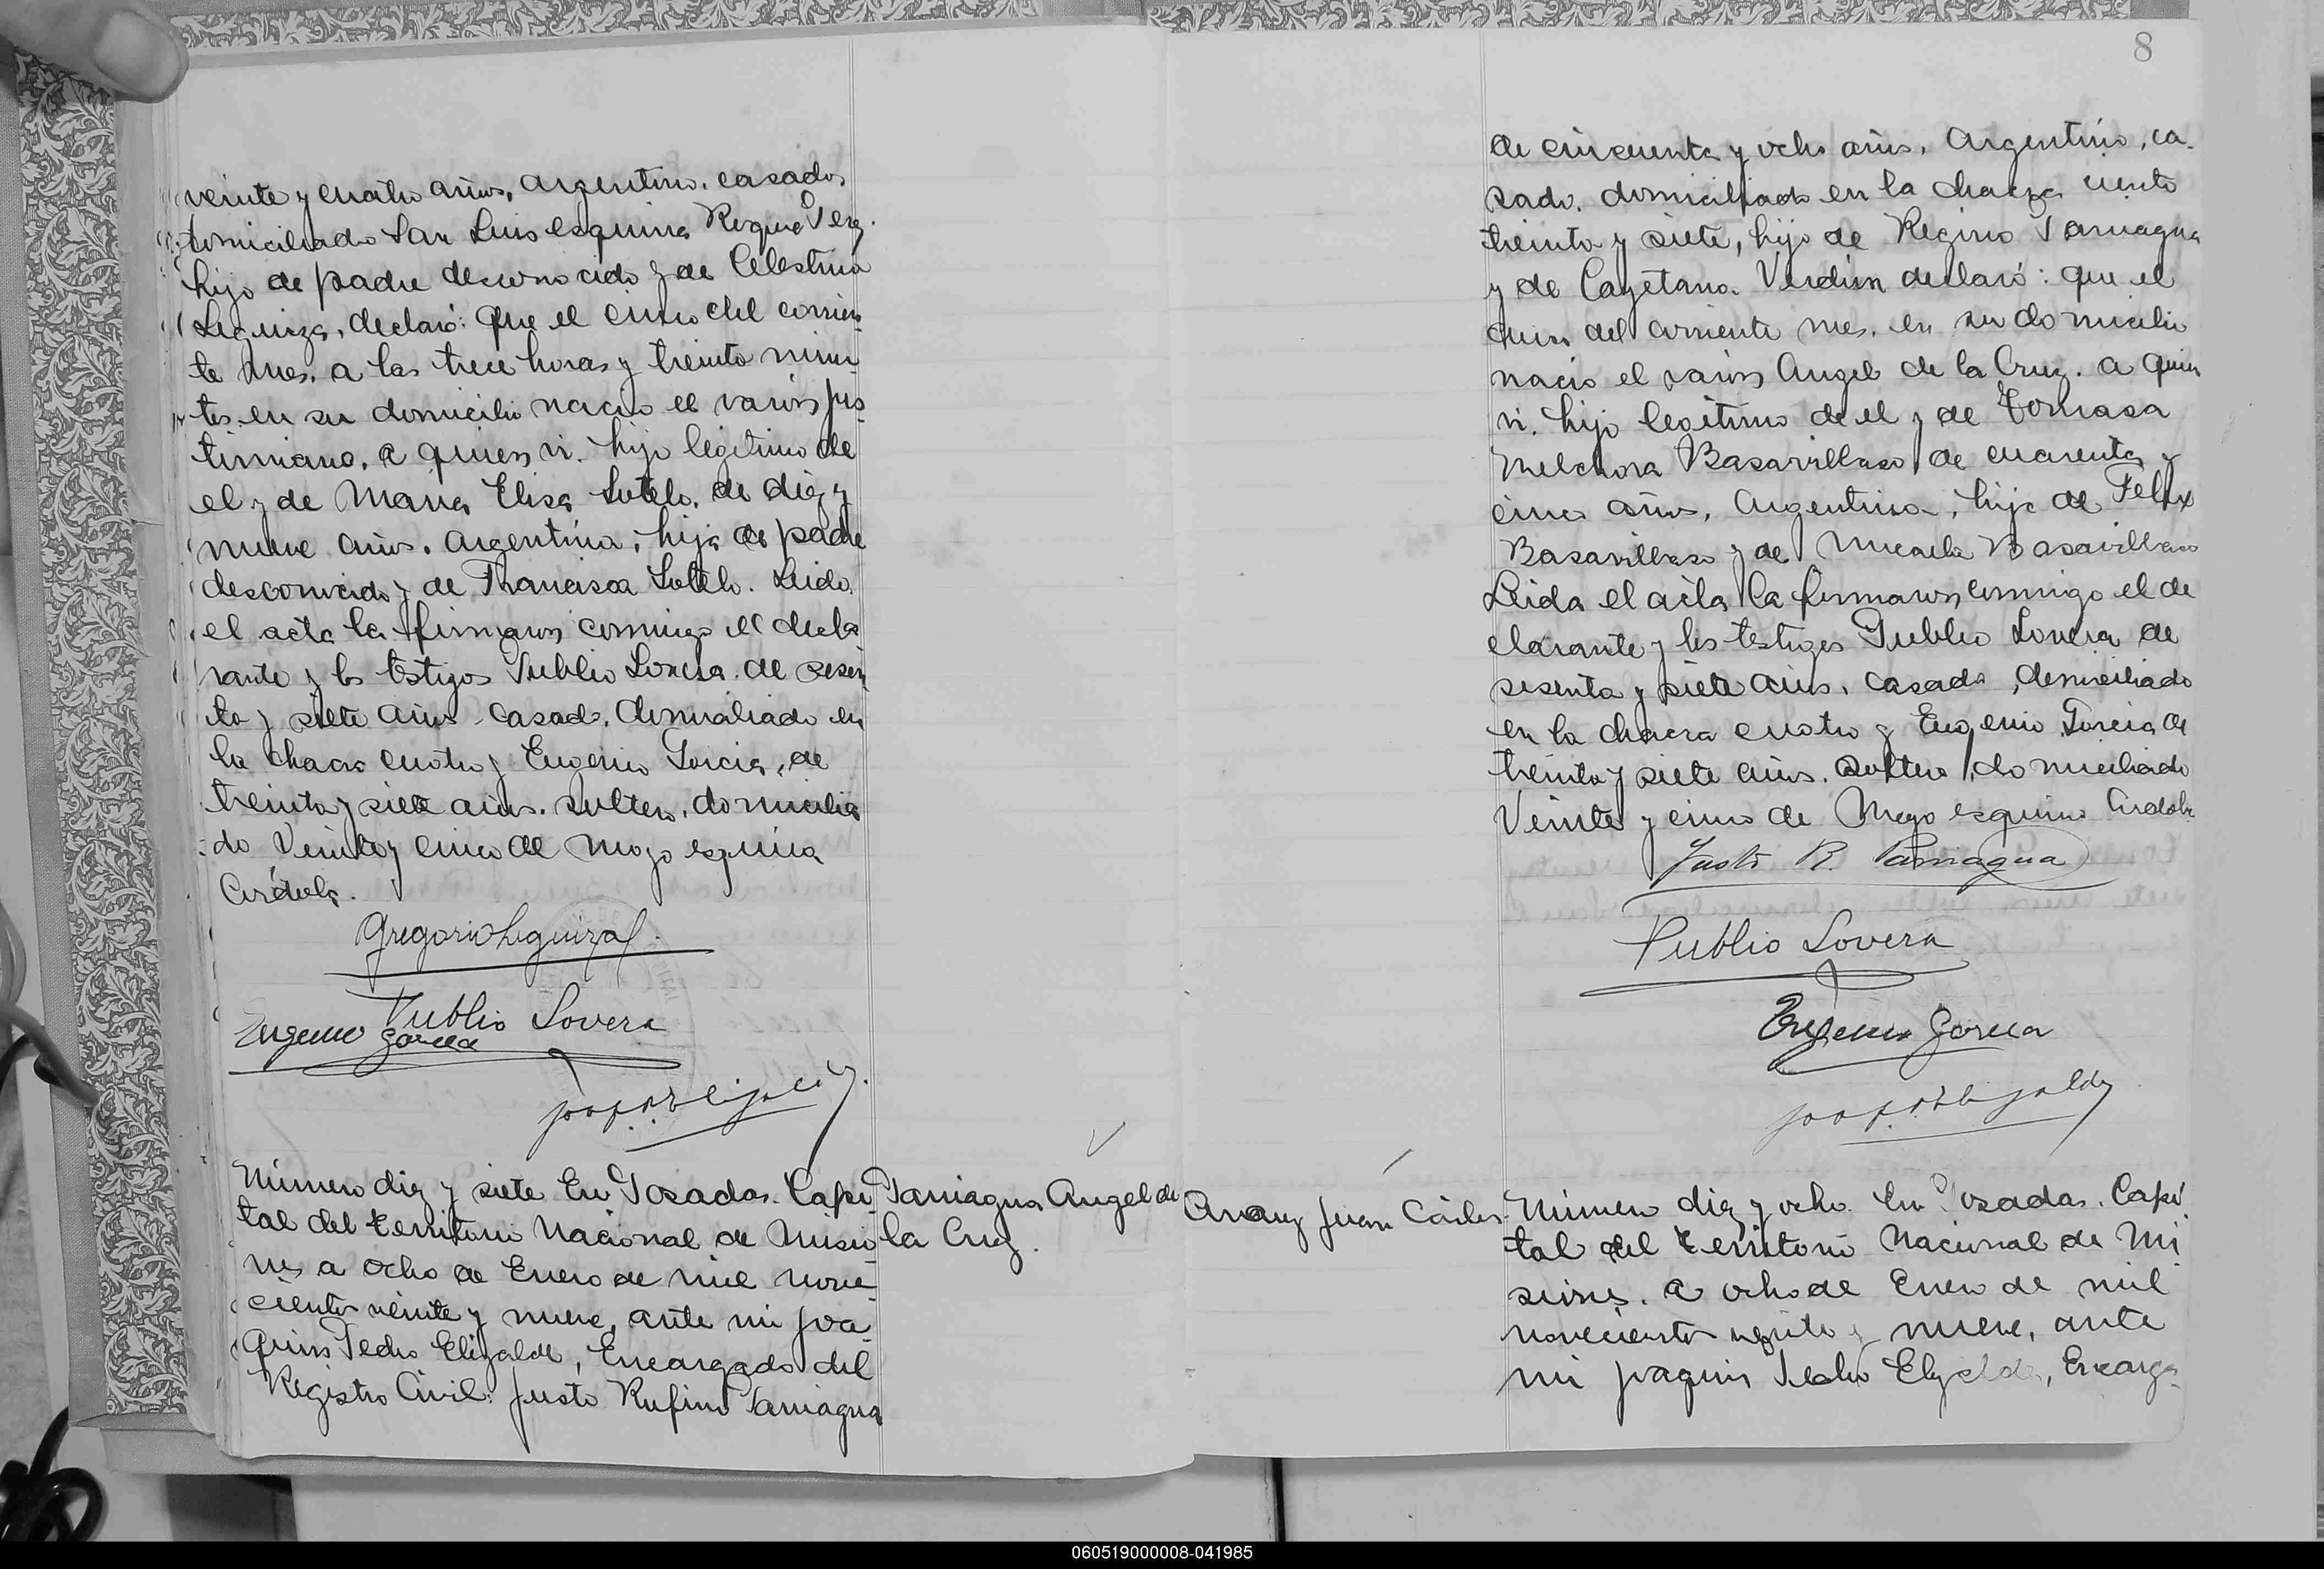 veinte y cuatro años, argentino, casado,
domiciliado San Luis esquina Roque Perez.
hijo de padre desconocido y de Celestina
Leguiza, declaró: que el cinco del corrien-
te mes, a las trece horas y treinta minu-
tos en su domicilio nació el varón Jus-
tiniano, a quien vi. hijo legitimo de
el y de Maria Elisa Sotelo, de diez y
nueve años. argentina, hija de padre
desconocido y de Francisca Sotelo. Leida
el acta la firmaron conmigo el decla
rante y los testigos Publio Lovera de sesen
ta y siete años casado, domiciliado en
la chacra cuatro y Eugenio Garcia, de
treinta y siete años. soltero, domicilia
do Veinte y cinco de Mayo esquina
Córdoba.
Gregorio Leguiza
Publio Lovera
Eugenio Garcia
Número diez y siete En Posadas. Capi
tal del territorio Nacional de Misio
nes a ocho de Enero de mil nove
cientos veinte y nueve, ante mi Joa
quin Pedro Elizalde, Encargado del
Registro Civil: Justo Rufino Paniagua
Paniagua Angel de
la Cruz.
8
de cincuenta y ocho años, Argentino, ca-
sado. domiciliado en la chacra ciento
treinta y siete, hijo de Regino Paniagua
y de Cayetana Verdún declaró: que el
del corriente mes. en su domicilio
nació el varón Angel de la Cruz. a quien
vi. hijo legítimo de el y de Tomasa
Melchora Basavilbaso de cuarenta y
cinco años, Argentina, hija de Felix
Basavilbaso y de Micaela Basavilbaso
Leida el acta la firmaron conmigo el de
clarante y los testigos Publio Lovera de
sesenta y siete años, casado, domiciliado
en la chacra cuatro y Eugenio Garcia de
treinta y siete años. soltero, domiciliado
Veinte y cinco de Mayo esquina Cordoba
Justo R. Paniagua
Publio Lovera
Eugenio Garcia
Arauz Juan Cárlos
Número diez y ocho. En Posadas. Capi
tal del Territorio Nacional de Mi
siones. a ocho de Enero de mil
novecientos veinte y nueve, ante
mi Joaquin Pedro Elizalde, Encarga
060519000008-041985